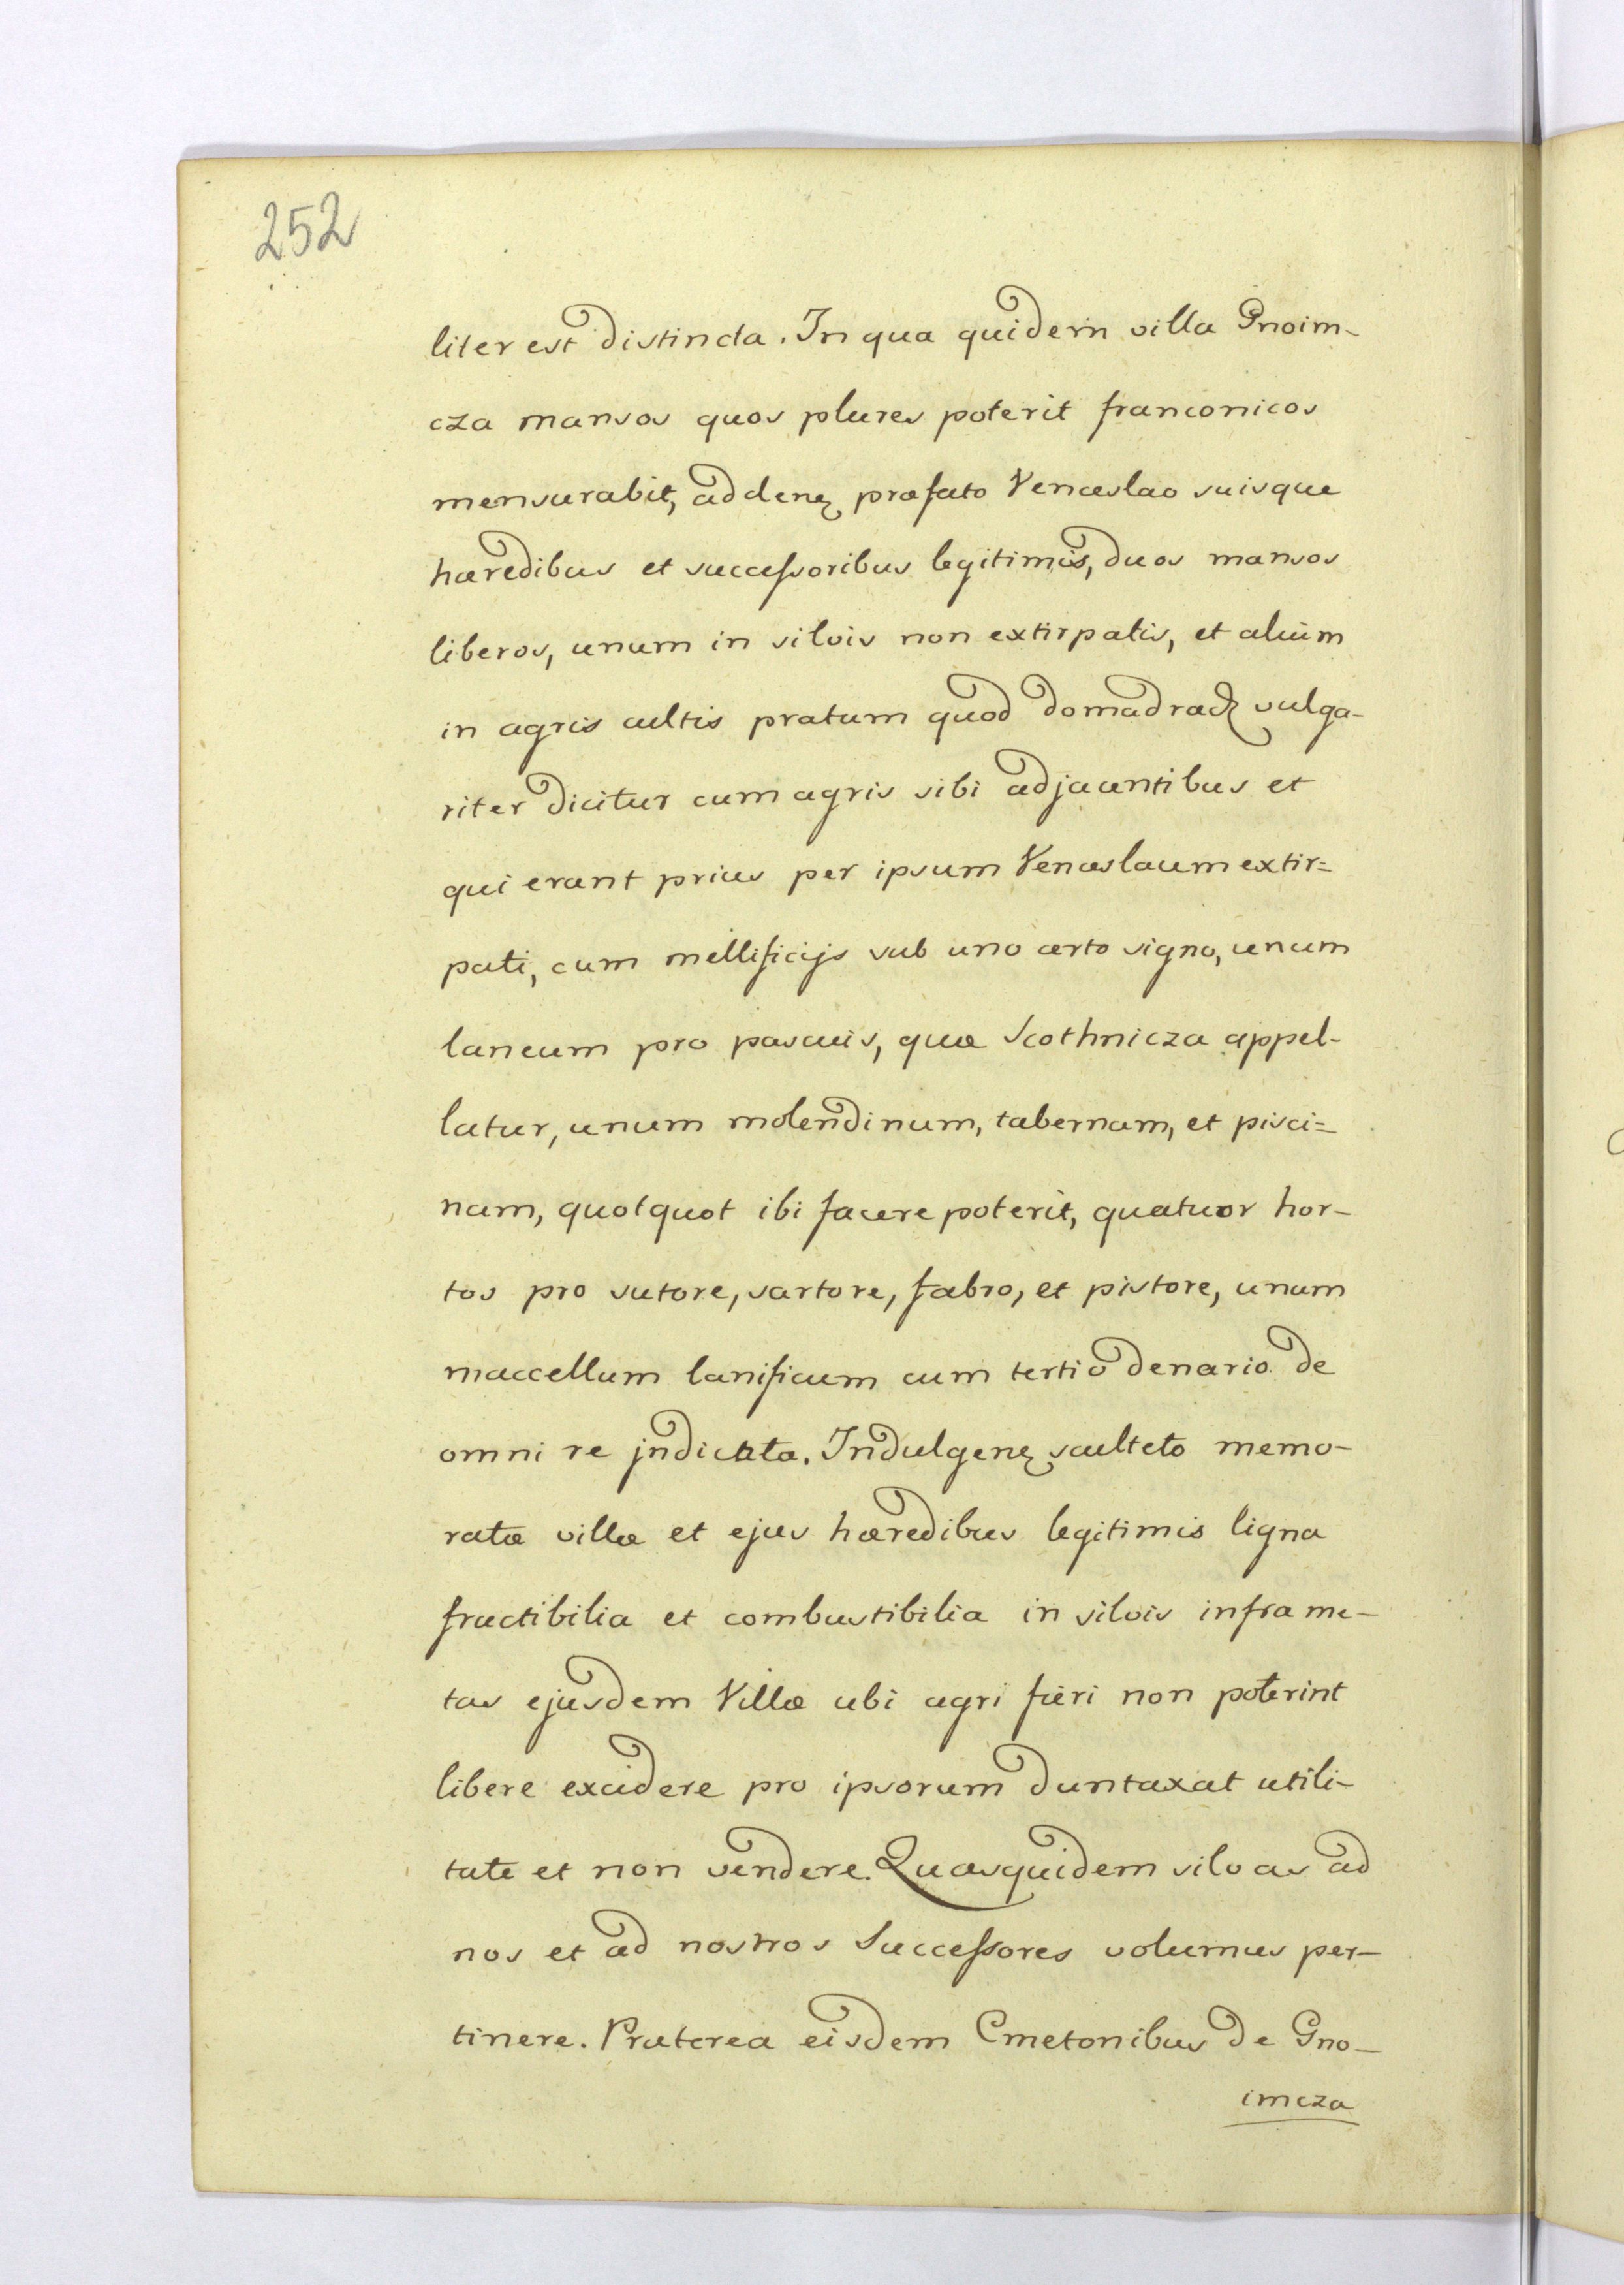 252
liter est distincta. In qua quidem villa Gnoim-
cza mansos quos plures poterit franconicos
mensurabit, addenȩ præfato Venceslao suisque
hæredibus et successoribus legitimis, duos mansos
liberos, unum in silvis non extirpatis, et alium
in agris cultis pratum quod domadradz vulga-
riter dicitur cum agris sibi adjacentibus et
qui erant prius per ipsum Venceslaum extir=
pati, cum mellificijs sub uno certo signo, unum
laneum pro pascuis, quæ Scothnicza appel-
latur, unum molendinum, tabernam, et pisci=
nam, quotquot ibi facere poterit, quatuor hor-
tos pro sutore, sartore, fabro, et pistore, unum
maccellum lanificum cum tertio denario de
omni re judicata. Indulgenȩ sculteto memo-
ratæ villæ et ejus hæredibus legitimis ligna
fructibilia et combustibilia in silvis infra me-
tas ejusdem Villæ ubi agri fieri non poterint
libere excidere pro ipsorum duntaxat utili-
tate et non vendere. Quasquidem silvas ad
nos et ad nostros Successores volumus per-
tinere. Præterea eisdem Cmetonibus de Gno-
imcza